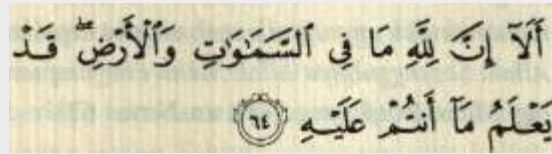 أَلَآ إِنَّ لِلَّهِ مَا فِي السَّمَٰوَٰتِ وَالْأَرْضِ ۖ قَدْ
يَعْلَمُ مَآ أَنتُمْ عَلَيْهِ ۝٦٤